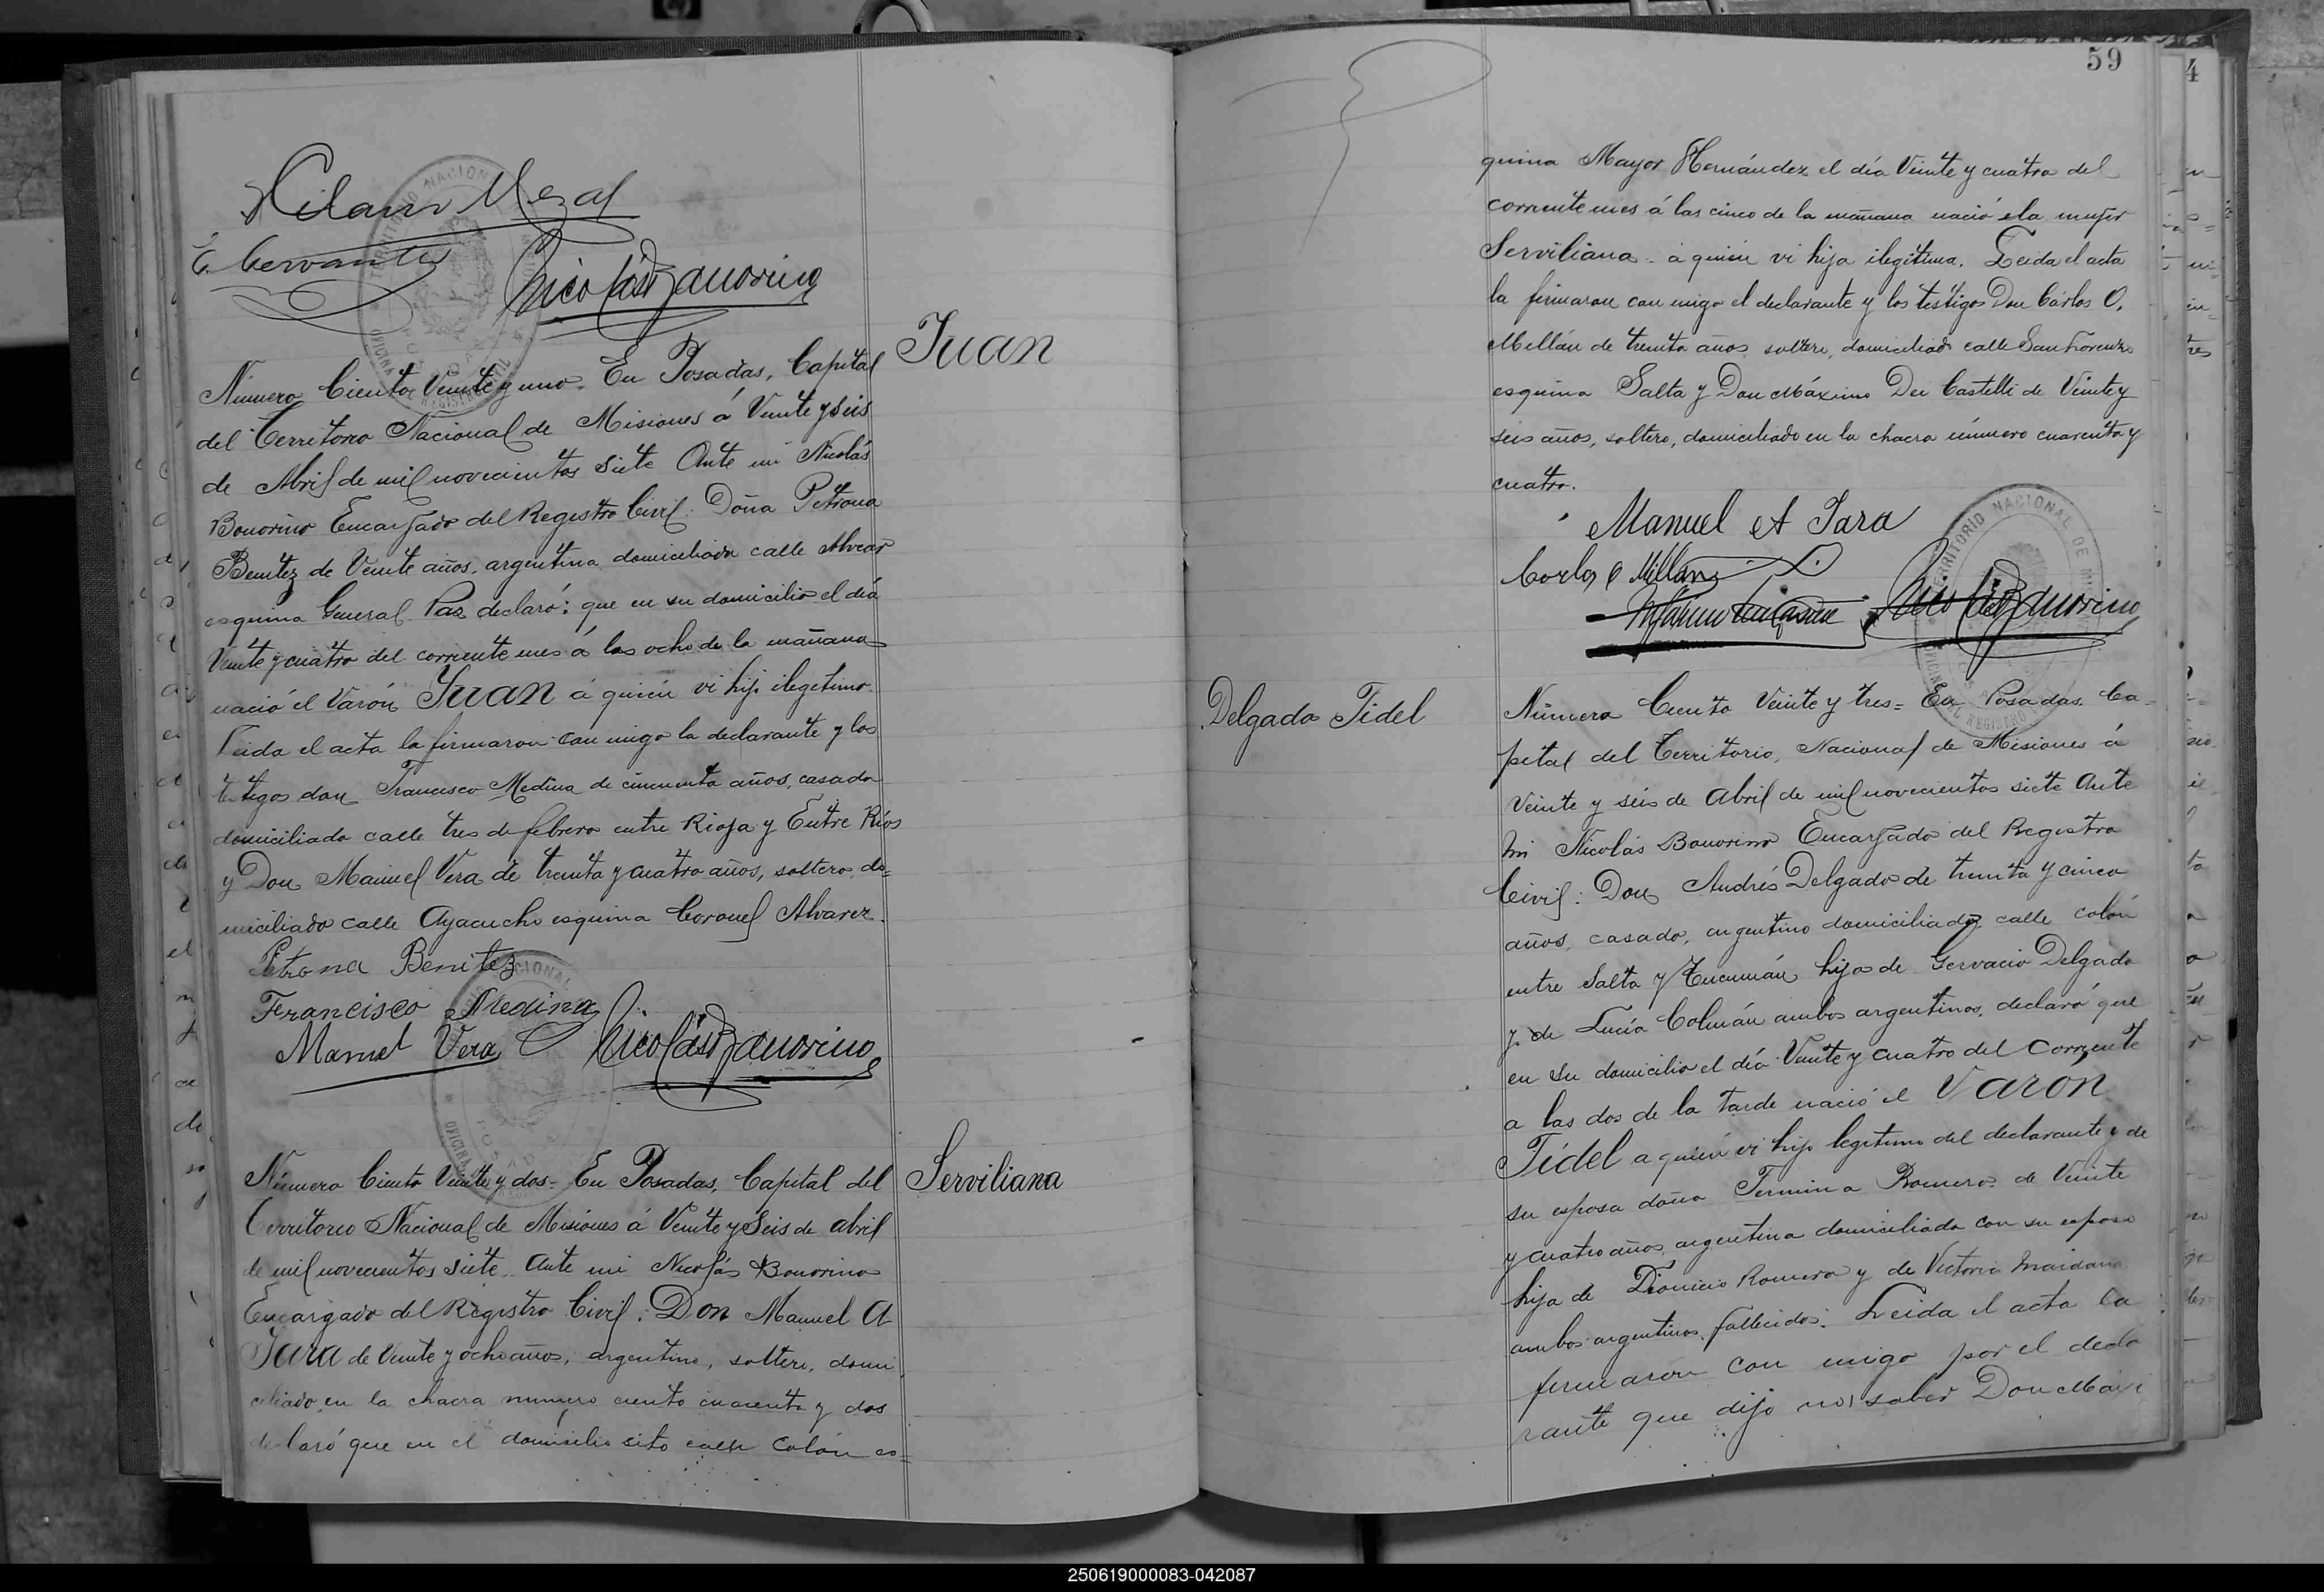 Hilario Meza
E. Cervantes
Nicolás Bonorino
Juan
Número Ciento Veinte y uno. En Posadas, Capital
del Territorio Nacional de Misiones á Veinte y seis
de Abril de mil novecientos siete Ante mi Nicolás
Bonorino Encargado del Registro Civil: Doña Petrona
Benitez de Veinte años, argentina domiciliada calle Alvear
esquina General Paz declaró: que en su domicilio el día
Veinte y cuatro del corriente mes á las ocho de la mañana
nació el Varón Juan á quien vi hijo ilegitimo.
Leida el acta la firmaron con migo la declarante y los
testigos don Francisco Medina de cincuenta años, casado
domiciliado calle tres de febrero entre Rioja y Entre Ríos
y Don Manuel Vera de treinta y cuatro años, soltero, do=
miciliado calle Ayacucho esquina Coronel Alvarez.
Petrona Benitez
Francisco Medina
Manuel Vera Nicolás Bonorino
Serviliana
Número Ciento Veinte y dos= En Posadas, Capital del
Territorio Nacional de Misiones á Veinte y Seis de abril
de mil novecientos siete. Ante mi Nicolás Bonorino
Encargado del Registro Civil: Don Manuel A
Jara de Veinte y ocho años, argentino, soltero, domi
ciliado en la chacra numero ciento cuarenta y dos
declaró que en el domicilio sito calle Colón es=
59
quina Mayor Hernández el día Veinte y cuatro del
corriente mes á las cinco de la mañana nació la mujer
Serviliana á quien vi hija ilegitima. Leida el acta
la firmaron con migo el declarante y los testigos Don Cárlos O.
Millán de treinta años, soltero, domiciliado calle San Lorenzo
esquina Salta y Don Máximo Dei Castelli de Veinte y
seis años, soltero, domiciliado en la chacra número cuarenta y
cuatro.
Manuel A Jara
Carlos O Millan
Nicolás Bonorino
Delgado Fidel
Número Ciento Veinte y tres= En Posadas Ca=
pital del Territorio, Nacional de Misiones á
Veinte y seis de Abril de mil novecientos siete Ante
mi Nicolás Bonorino Encargado del Registro
Civil: Don Andrés Delgado de treinta y cinco
años, casado, argentino domiciliado calle colón
entre Salta y Tucumán hijo de Gervacio Delgado
y de Lucía Colmán ambos argentinos, declaró que
en su domicilio el día Veinte y cuatro del corriente
a las dos de la tarde nació el Varón
Fidel a quien vi hijo legitimo del declarante y de
su esposa doña Fermina Romero de Veinte
y cuatro años, argentina domiciliada con su esposo
hija de Dionicio Romero y de Victoria Maidana
ambos argentinos, fallecidos. Leida el acta la
firmaron con migo por el decla
rante que dijo no saber Don Maxi
250619000083-042087